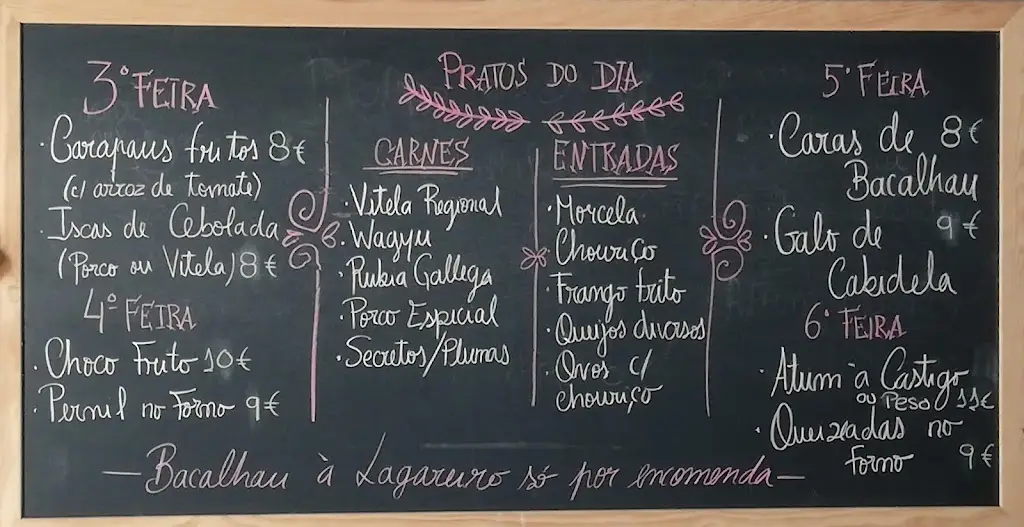 PRATOS DO DIA
3ª FEIRA
· Carapaus fritos 8€
(c/ arroz de tomate)
· Iscas de Cebolada
(Porco ou Vitela) 8€
4ª FEIRA
· Choco Frito 10€
· Pernil no Forno 9€
CARNES
· Vitela Regional
· Wagyu
· Rubia Gallega
· Porco Especial
· Secretos/Plumas
ENTRADAS
· Morcela
· Chouriço
· Frango frito
· Queijos diversos
· Ovos c/
chouriço
5ª FEIRA
· Caras de 8€
Bacalhau
· Galo de 9€
Cabidela
6ª FEIRA
· Atum à Castigo
ou Peso 11€
· Queixadas no
forno 9€
— Bacalhau à Lagareiro só por encomenda —